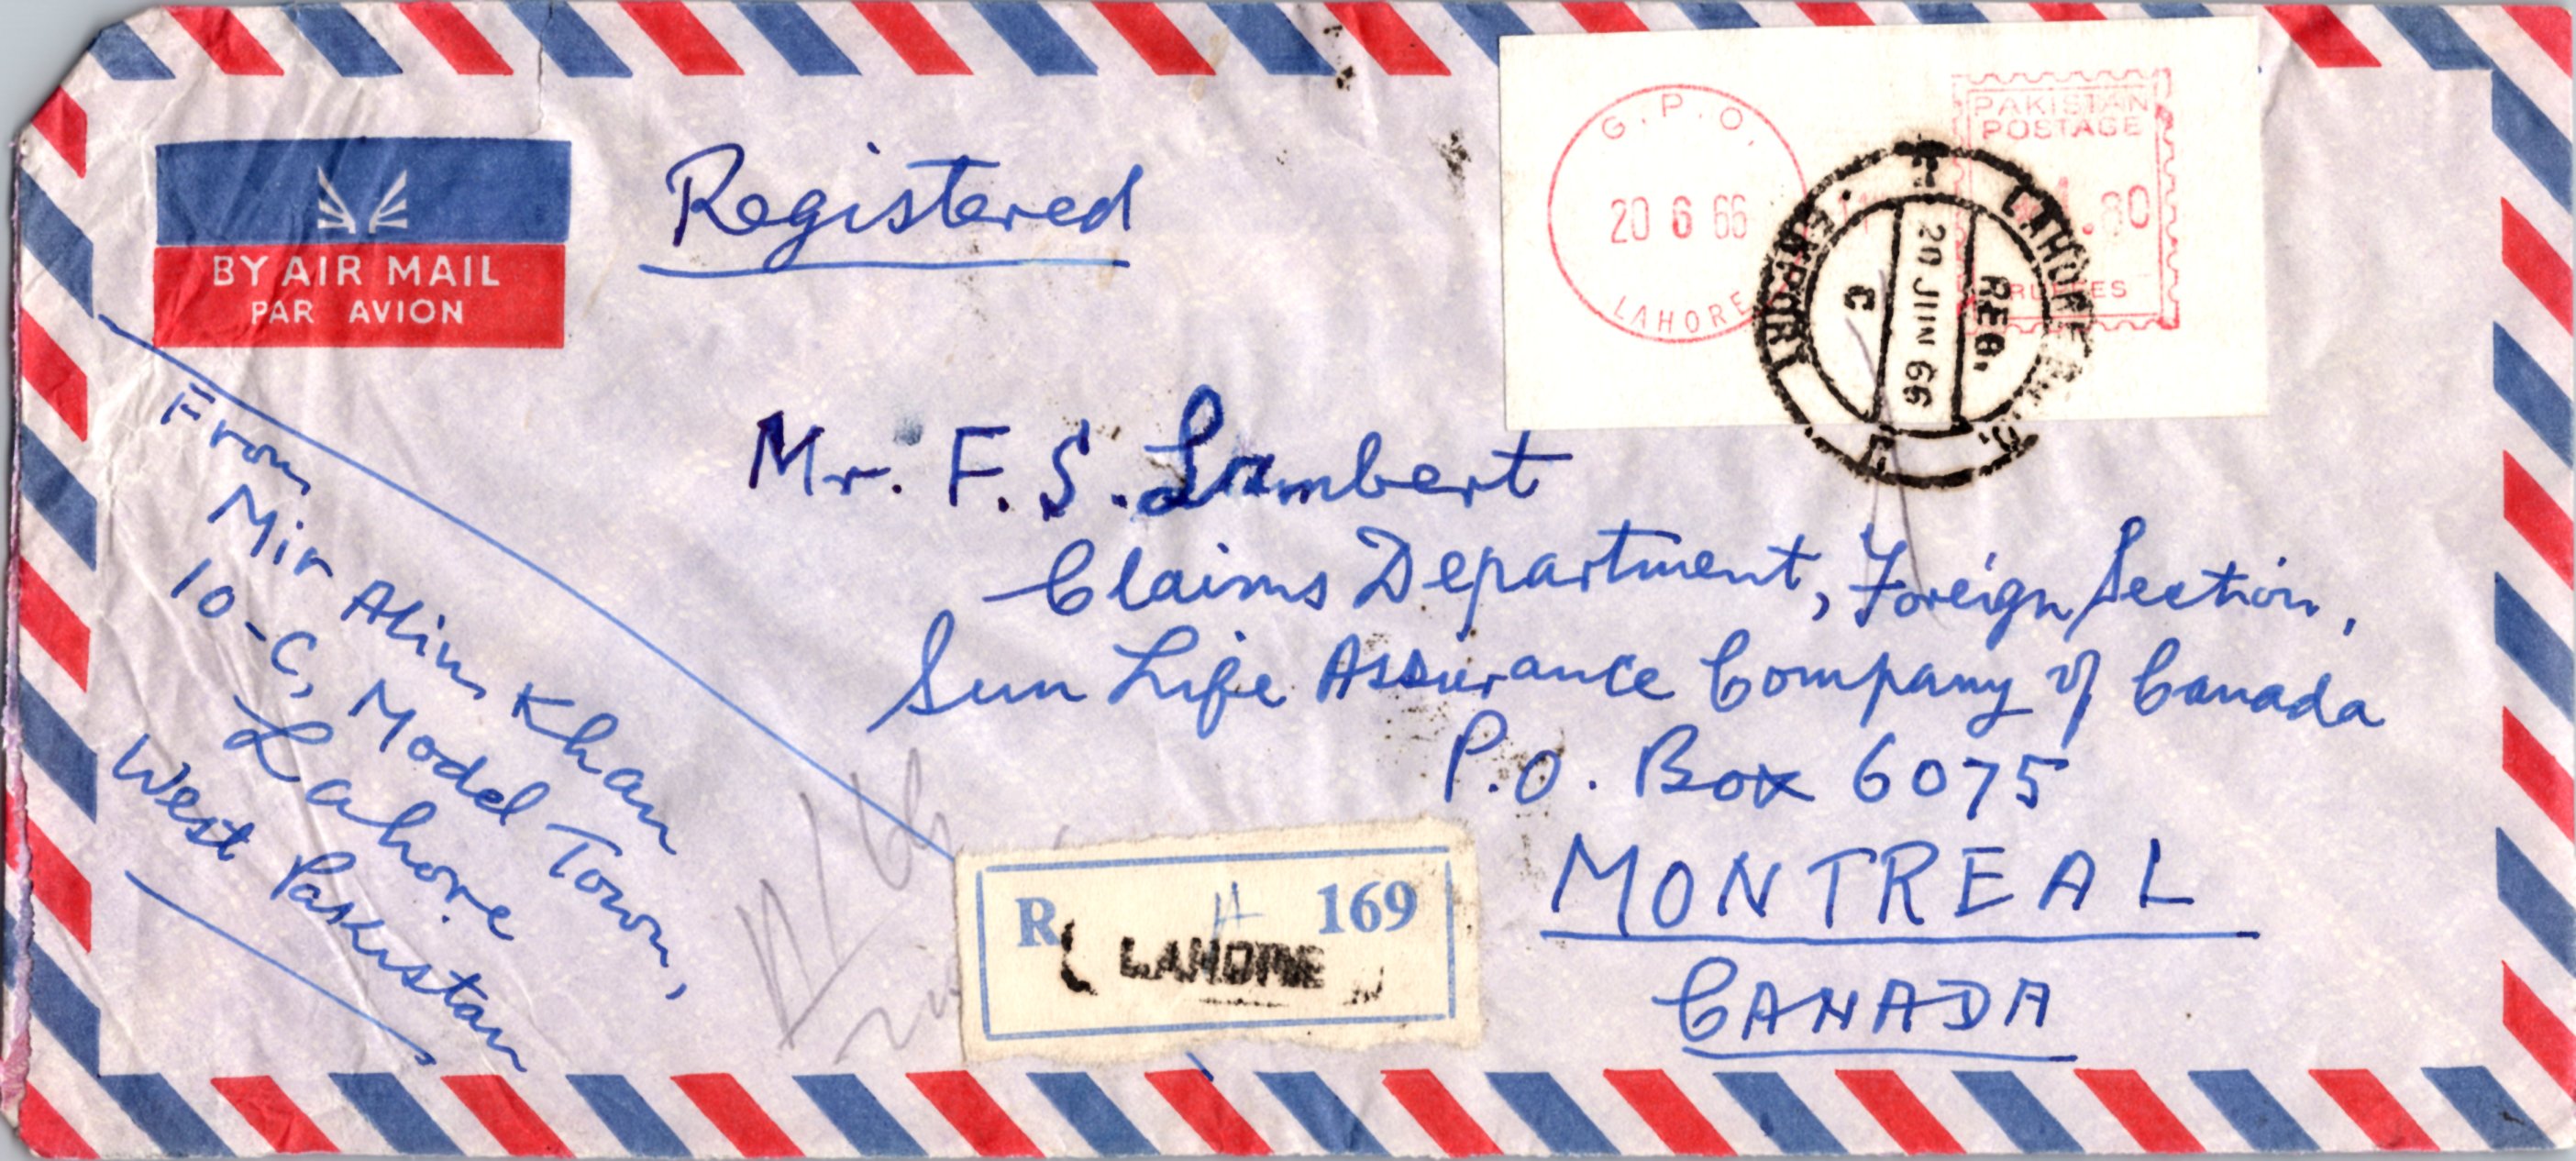 BY AIR MAIL
PAR AVION
Registered
G.P.O.
20 6 66
LAHORE
PAKISTAN
POSTAGE
.80
RUPEES
LAHORE
REG.
20 JUN 66
C
EXPORT
From
Mir Alim Khan
10-C, Model Town,
Lahore
West Pakistan
Mr. F. S. Lambert
Claims Department, Foreign Section,
Sun Life Assurance Company of Canada
P.O. Box 6075
MONTREAL
CANADA
R A 169
LAHORE